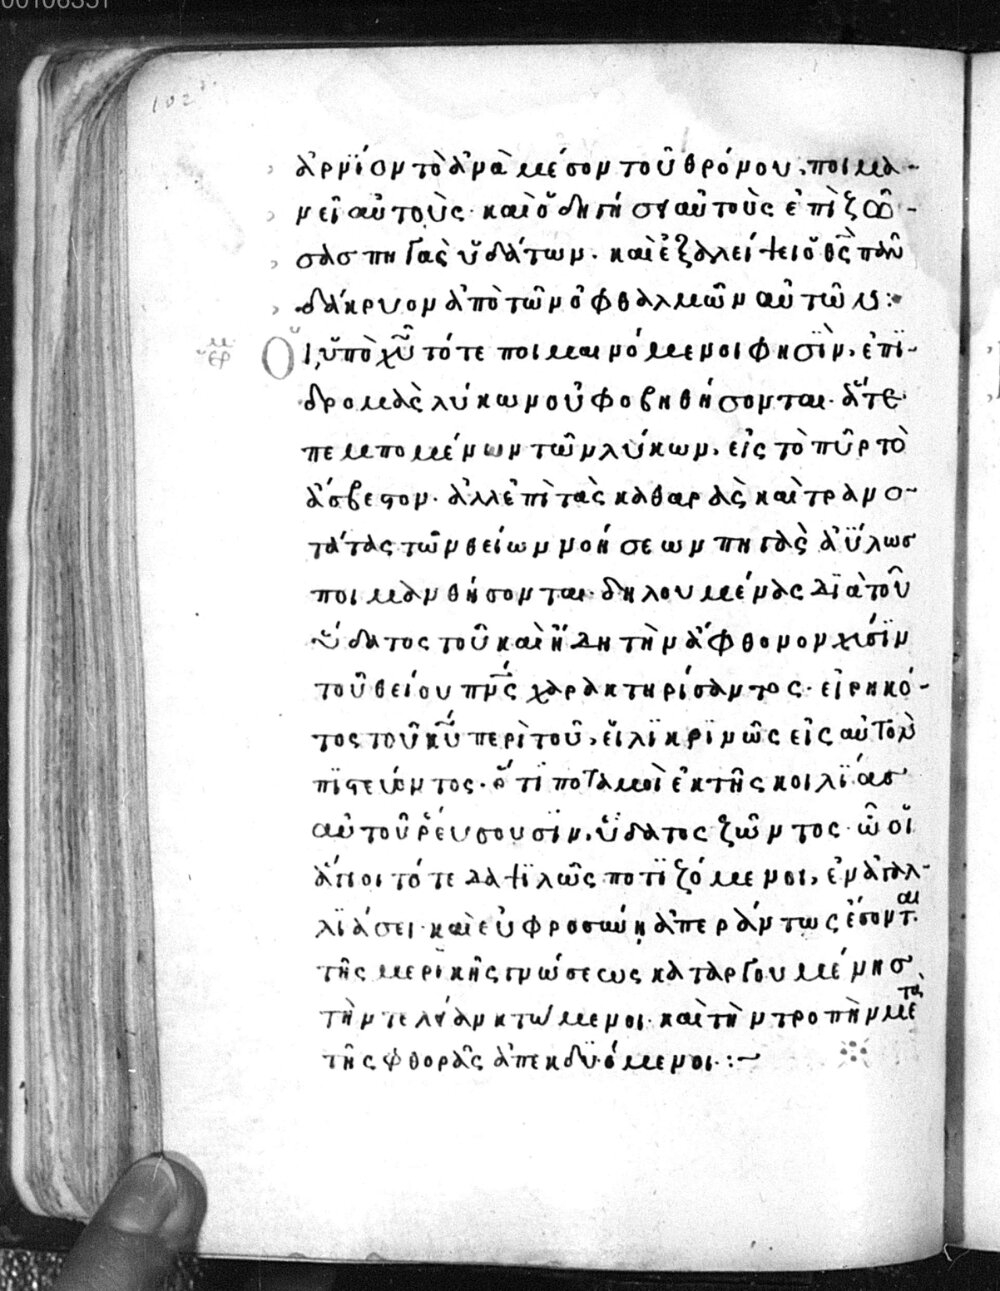 00106351
102
ἀρνίον τὸ ἀνὰ μέσον τοῦ θρόνου, ποιμα-
νεῖ αὐτοὺς· καὶ ὁδηγήσει αὐτοὺς ἐπὶ ζω-
σας πηγὰς ὑδάτων· καὶ ἐξαλείψει ὁ θς πᾶν
δάκρυον ἀπὸ τῶν ὀφθαλμῶν αὐτῶν:
ἑρμ
Οἱ ὑπὸ χυ τότε ποιμαινόμενοι φησὶν, ἐπι-
δρομὰς λύκων οὐ φοβηθήσονται· ἅτε
πεμπομένων τῶν λύκων, εἰς τὸ πῦρ τὸ
ἄσβεστον· ἀλλ' ἐπὶ τὰς καθαρὰς καὶ τρανο-
τάτας τῶν θείων νοήσεων πηγὰς ἀΰλως
ποιμανθήσονται· δηλουμένας διὰ τοῦ
ὕδατος τοῦ καὶ ἤδη τὴν ἄφθονον χύσιν
τοῦ θείου πνς χαρακτηρίσαντος· εἰρηκό-
τος τοῦ κυ περὶ τοῦ, εἰλικρινῶς εἰς αὐτὸν
πιστεύοντος· ὅτι ποταμοὶ ἐκ τῆς κοιλίας
αὐτοῦ ῥεύσουσιν, ὕδατος ζῶντος· ὧ οἱ
ἅγιοι τότε δαψιλῶς ποτιζόμενοι, ἐν ἀγαλ-
λιάσει καὶ εὐφροσύνῃ ἀπεράντως ἔσονται
τῆς μερικῆς γνώσεως καταργουμένης
τὴν τελείαν κτώμενοι· καὶ τὴν τροπὴν μετὰ
τῆς φθορᾶς ἀπεκδυόμενοι:~